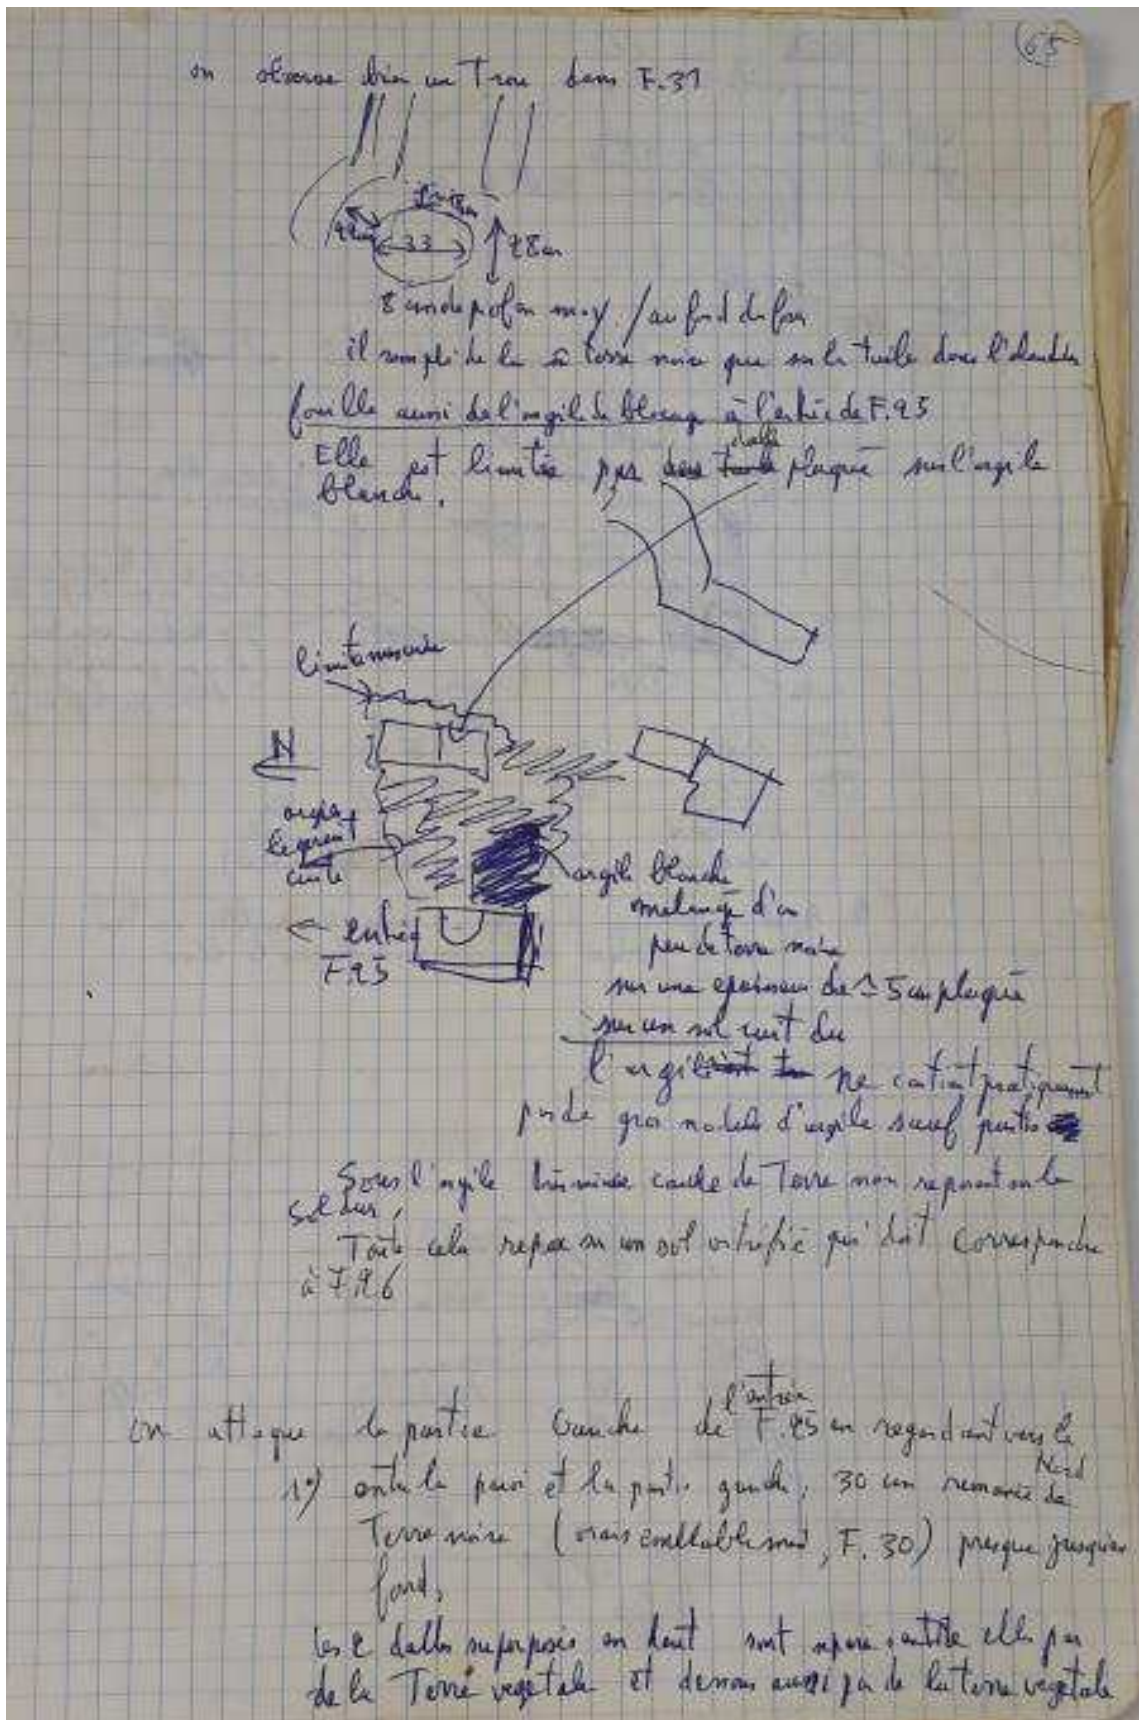 65
on observe bien un Trou dans F.31
33
28cm
8 cm de prof en moy. / au fond du four
il rempli de la terre noire que sur la tuile dans l'alandier
fouille aussi de l'argile de blocage à l'entrée de F.25
Elle est limitée par dalle plaquée sur l'argile
blanche.
N
argile
legerement
cuite
argile blanche
melangé d'un
peu de terre noire
← entrée
F.25
sur une epaisseur de ≃ 5 cm plaquée
sur un sol cuit dur
l'argile ne contient pratiquement
pas de gros nodules d'argile sauf partie
Sous l'argile très mince couche de Terre noire reposant sur le
sol dur,
Toute cela repose sur un sol vitrifié qui doit correspondre
à F.26
l'entrée
on attaque la partie Gauche de F.25 en regardant vers le
Nord
1°) entre la paroi et la partie gauche, 30 cm remanié de
Terre noire (vraisemblablement, F.30) presque jusqu'au
fond,
les 2 dalles superposés en haut sont separés entre elles par
de la Terre vegetale et dessous aussi par de la terre vegetale